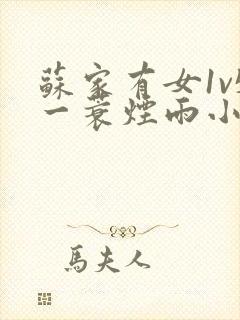 蘇家有女1v
一蓑煙雨小
馬夫人